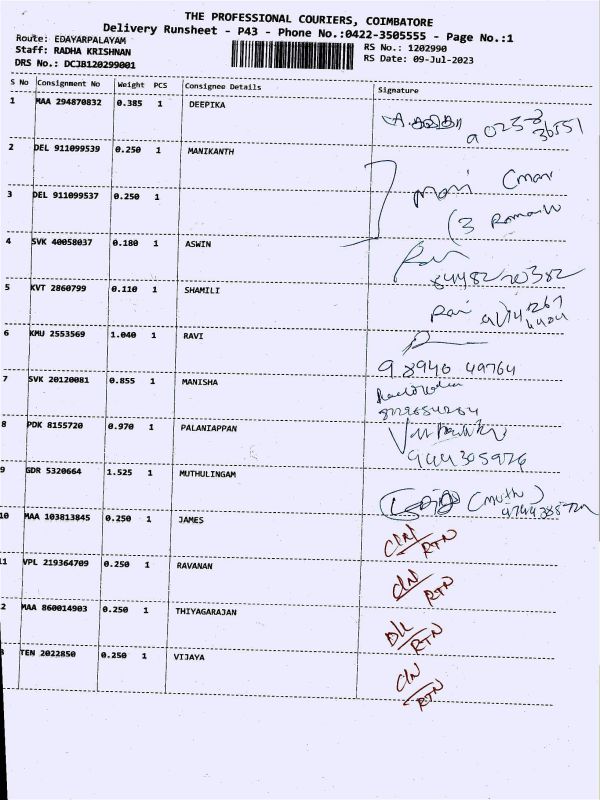 THE PROFESSIONAL COURIERS, COIMBATORE
Delivery Runsheet - P43 - Phone No.:0422-3505555 - Page No.:1
Route: EDAYARPALAYAM
RS No.: 1202990
Staff: RADHA KRISHNAN
RS Date: 09-Jul-2023
DRS No.: DCJB120299001
S No Consignment No Weight PCS Consignee Details Signature
1 MAA 294870832 0.385 1 DEEPIKA
2 DEL 911099539 0.250 1 MANIKANTH
3 DEL 911099537 0.250 1
4 SVK 40058037 0.180 1 ASWIN
8448220382
5 KVT 2860799 0.110 1 SHAMILI
6 KMU 2553569 1.040 1 RAVI
98940 49764
7 SVK 20120081 0.855 1 MANISHA
8 PDK 8155720 0.970 1 PALANIAPPAN
9 GDR 5320664 1.525 1 MUTHULINGAM
(muth)
10 MAA 103813845 0.250 1 JAMES
RTN
11 VPL 219364709 0.250 1 RAVANAN
RTN
2 MAA 860014903 0.250 1 THIYAGARAJAN
RTN
TEN 2022850 0.250 1 VIJAYA
RTN